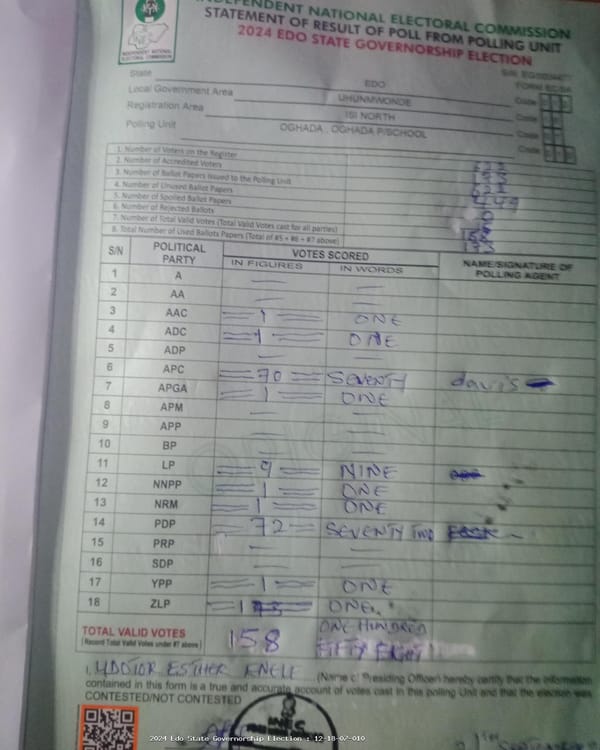 INDEPENDENT NATIONAL ELECTORAL COMMISSION
STATEMENT OF RESULT OF POLL FROM POLLING UNIT
2024 EDO STATE GOVERNORSHIP ELECTION
INDEPENDENT NATIONAL
ELECTORAL COMMISSION
State EDO
Local Government Area UHUNMWONDE Code
Registration Area ISI NORTH Code
Polling Unit OGHADA, OGHADA P/SCHOOL Code
1. Number of Voters on the Register
2. Number of Accredited Voters
3. Number of Ballot Papers Issued to the Polling Unit
4. Number of Unused Ballot Papers
5. Number of Spoiled Ballot Papers
6. Number of Rejected Ballots
7. Number of Total Valid Votes (Total Valid Votes cast for all parties)
8. Total Number of Used Ballots Papers (Total of #5 + #6 + #7 above)
S/N POLITICAL PARTY VOTES SCORED NAME/SIGNATURE OF POLLING AGENT
IN FIGURES IN WORDS
1 A
2 AA
3 AAC 1 ONE
4 ADC 1 ONE
5 ADP
6 APC 70 SEVENTY davis
7 APGA 1 ONE
8 APM
9 APP
10 BP
11 LP 9 NINE
12 NNPP 1 ONE
13 NRM 1 ONE
14 PDP 72 SEVENTY TWO
15 PRP
16 SDP
17 YPP 1 ONE
18 ZLP 1 ONE
TOTAL VALID VOTES 158 ONE HUNDRED
(Record Total Valid Votes under #7 above) FIFTY EIGHT
I, ESTHER (Name of Presiding Officer) hereby certify that the information
contained in this form is a true and accurate account of votes cast in this polling Unit and that the election was
CONTESTED/NOT CONTESTED
INEC
2024 Edo State Governorship Election : 12-18-07-010